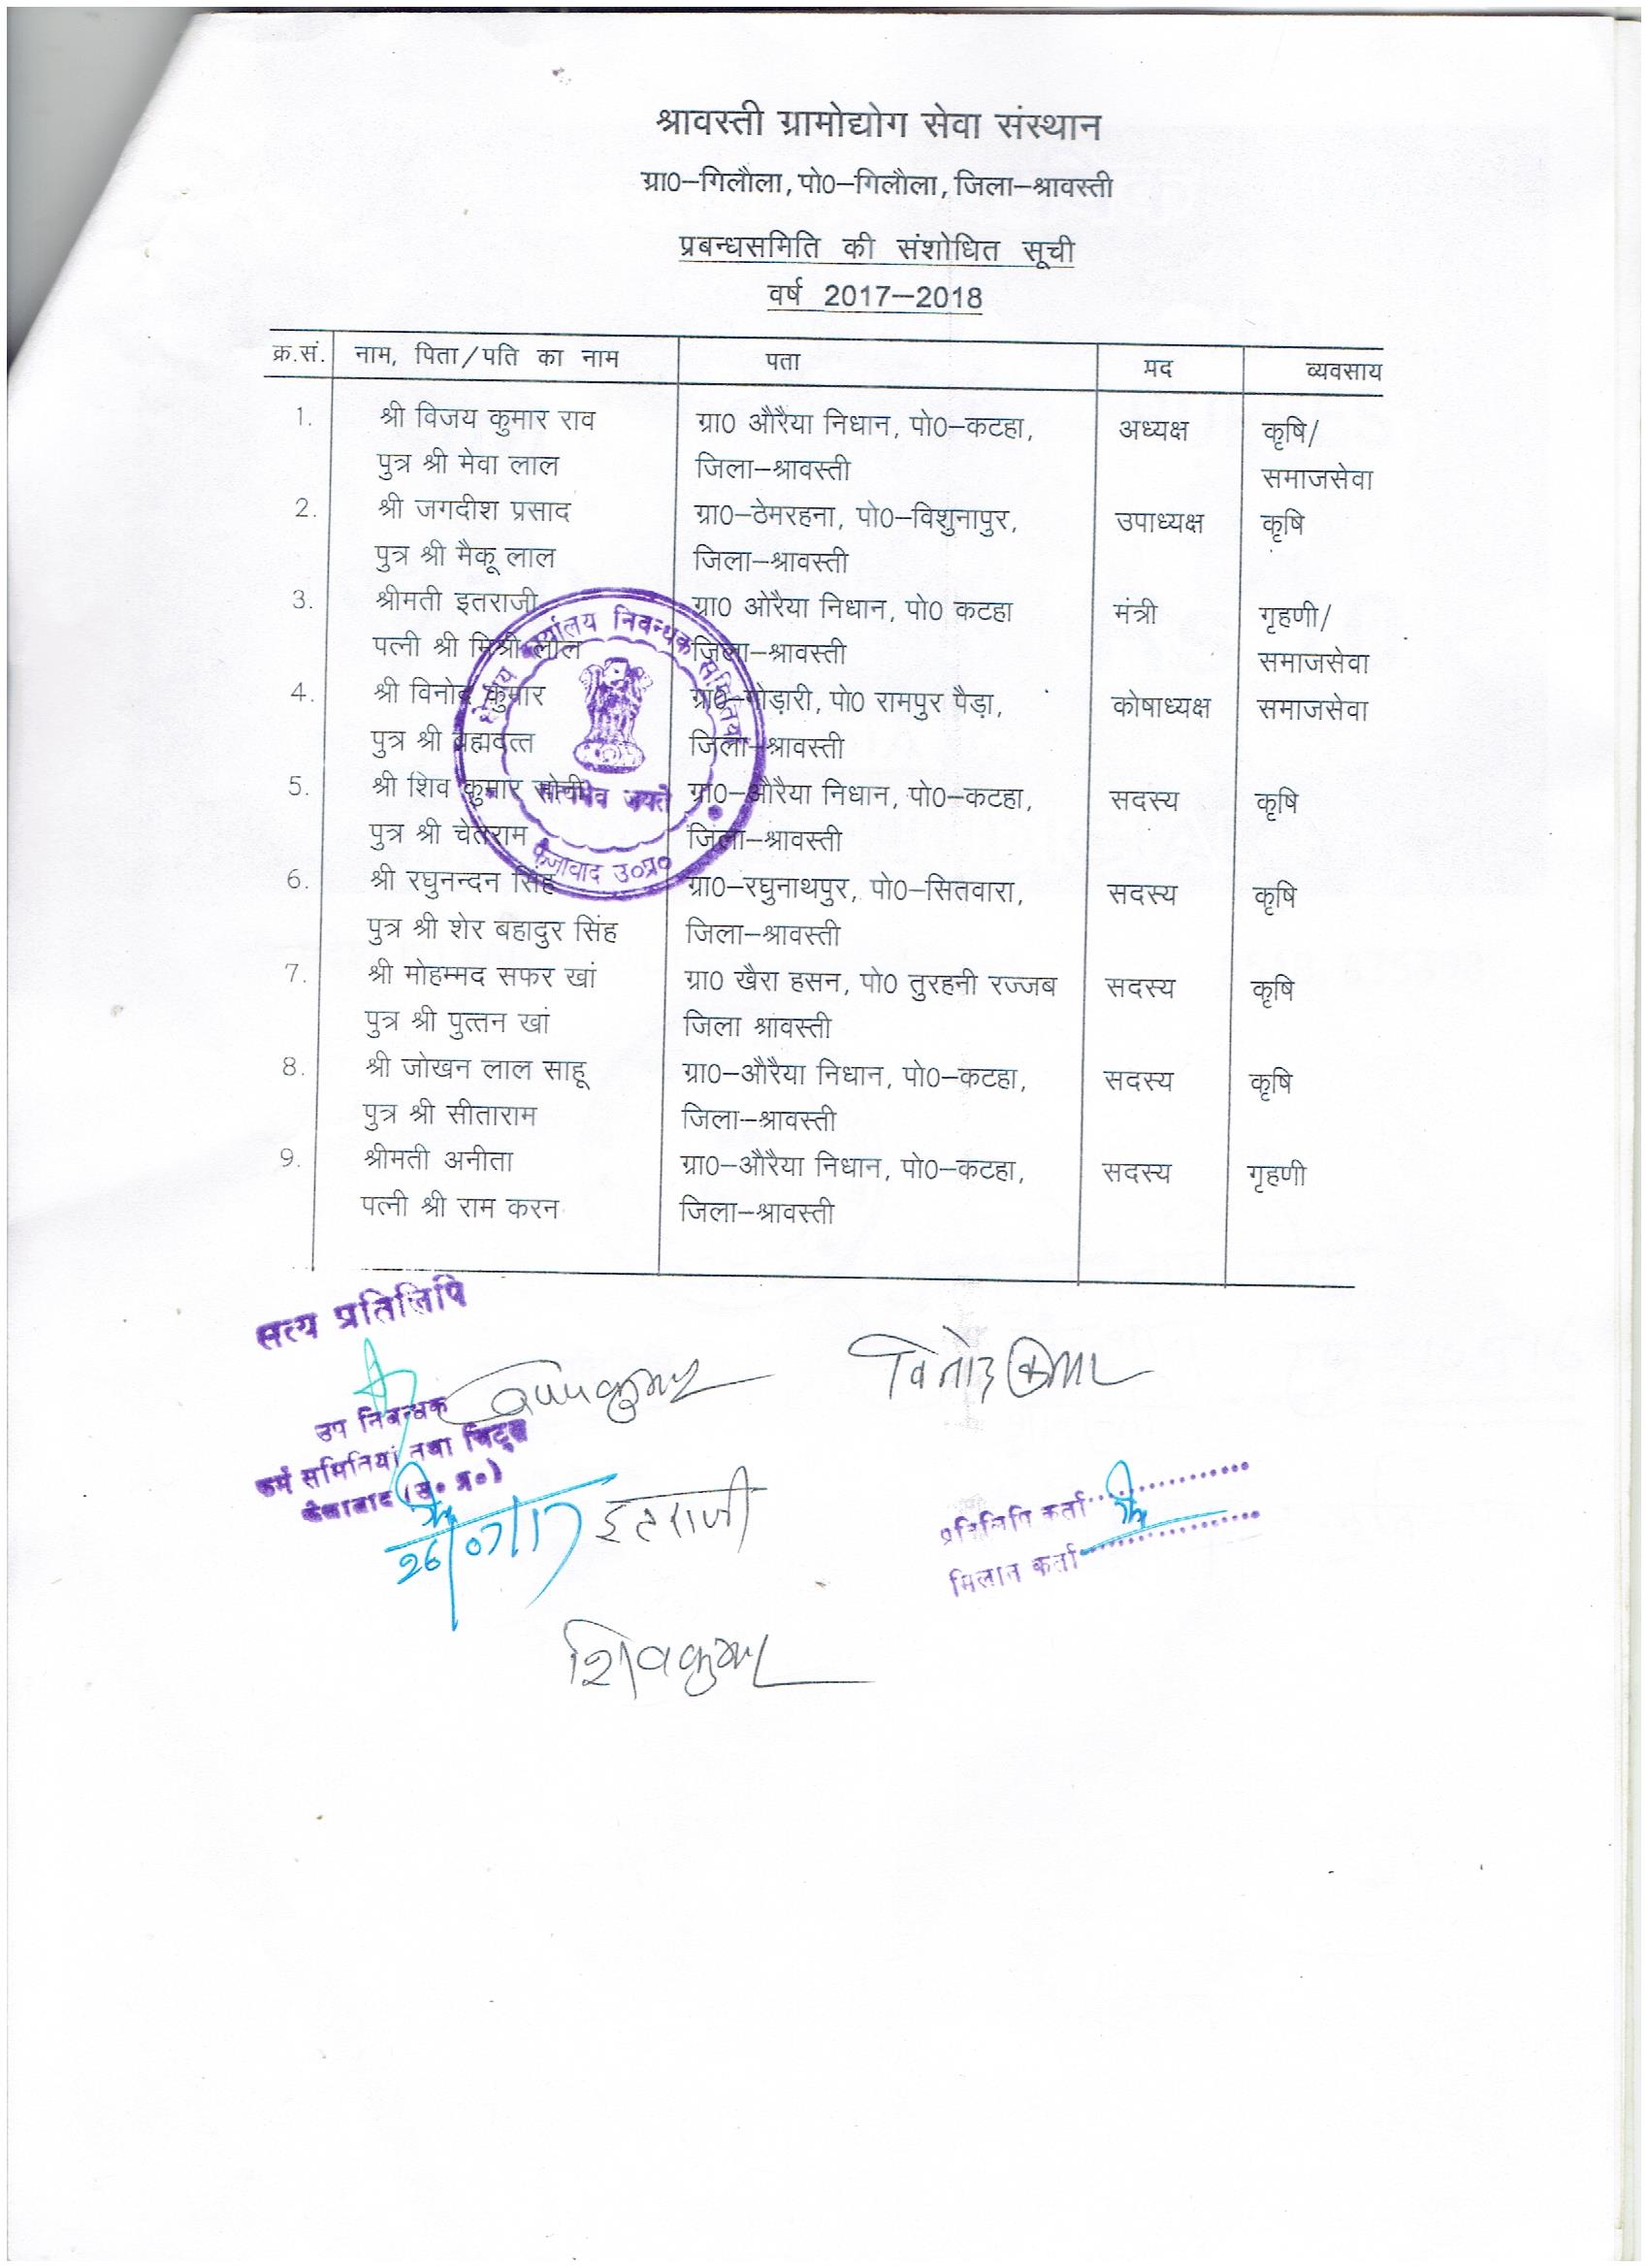 श्रावस्ती ग्रामोद्योग सेवा संस्थान
ग्रा0–गिलौला, पो0–गिलौला, जिला–श्रावस्ती
प्रबन्धसमिति की संशोधित सूची
वर्ष 2017–2018
क्र.सं. नाम, पिता/पति का नाम पता पद व्यवसाय
1. श्री विजय कुमार राव ग्रा0 औरैया निधान, पो0–कटहा, अध्यक्ष कृषि/
पुत्र श्री मेवा लाल जिला–श्रावस्ती समाजसेवा
2. श्री जगदीश प्रसाद ग्रा0–ठेमरहना, पो0–विशुनापुर, उपाध्यक्ष कृषि
पुत्र श्री मैकू लाल जिला–श्रावस्ती
3. श्रीमती इतराजी ग्रा0 ओरैया निधान, पो0 कटहा मंत्री गृहणी/
पत्नी श्री मिश्री लाल जिला–श्रावस्ती समाजसेवा
4. श्री विनोद कुमार ग्रा0–गोड़ारी, पो0 रामपुर पैड़ा, कोषाध्यक्ष समाजसेवा
पुत्र श्री ब्रह्मदत्त जिला–श्रावस्ती
5. श्री शिव कुमार ग्रा0–औरैया निधान, पो0–कटहा, सदस्य कृषि
पुत्र श्री चेतराम जिला–श्रावस्ती
6. श्री रघुनन्दन सिंह ग्रा0–रघुनाथपुर, पो0–सितवारा, सदस्य कृषि
पुत्र श्री शेर बहादुर सिंह जिला–श्रावस्ती
7. श्री मोहम्मद सफर खां ग्रा0 खैरा हसन, पो0 तुरहनी रज्जब सदस्य कृषि
पुत्र श्री पुत्तन खां जिला श्रावस्ती
8. श्री जोखन लाल साहू ग्रा0–औरैया निधान, पो0–कटहा, सदस्य कृषि
पुत्र श्री सीताराम जिला–श्रावस्ती
9. श्रीमती अनीता ग्रा0–औरैया निधान, पो0–कटहा, सदस्य गृहणी
पत्नी श्री राम करन जिला–श्रावस्ती
कार्यालय निबन्धक समितियां
सत्यमेव जयते
फैजाबाद उ०प्र०
सत्य प्रतिलिपि
विनोद कुमार
उप निबन्धक
फर्म समितियां तथा चिट्स
फैजाबाद (उ० प्र०)
26/07/17
इतराजी
प्रतिलिपि कर्ता
मिलान कर्ता
शिवकुमार